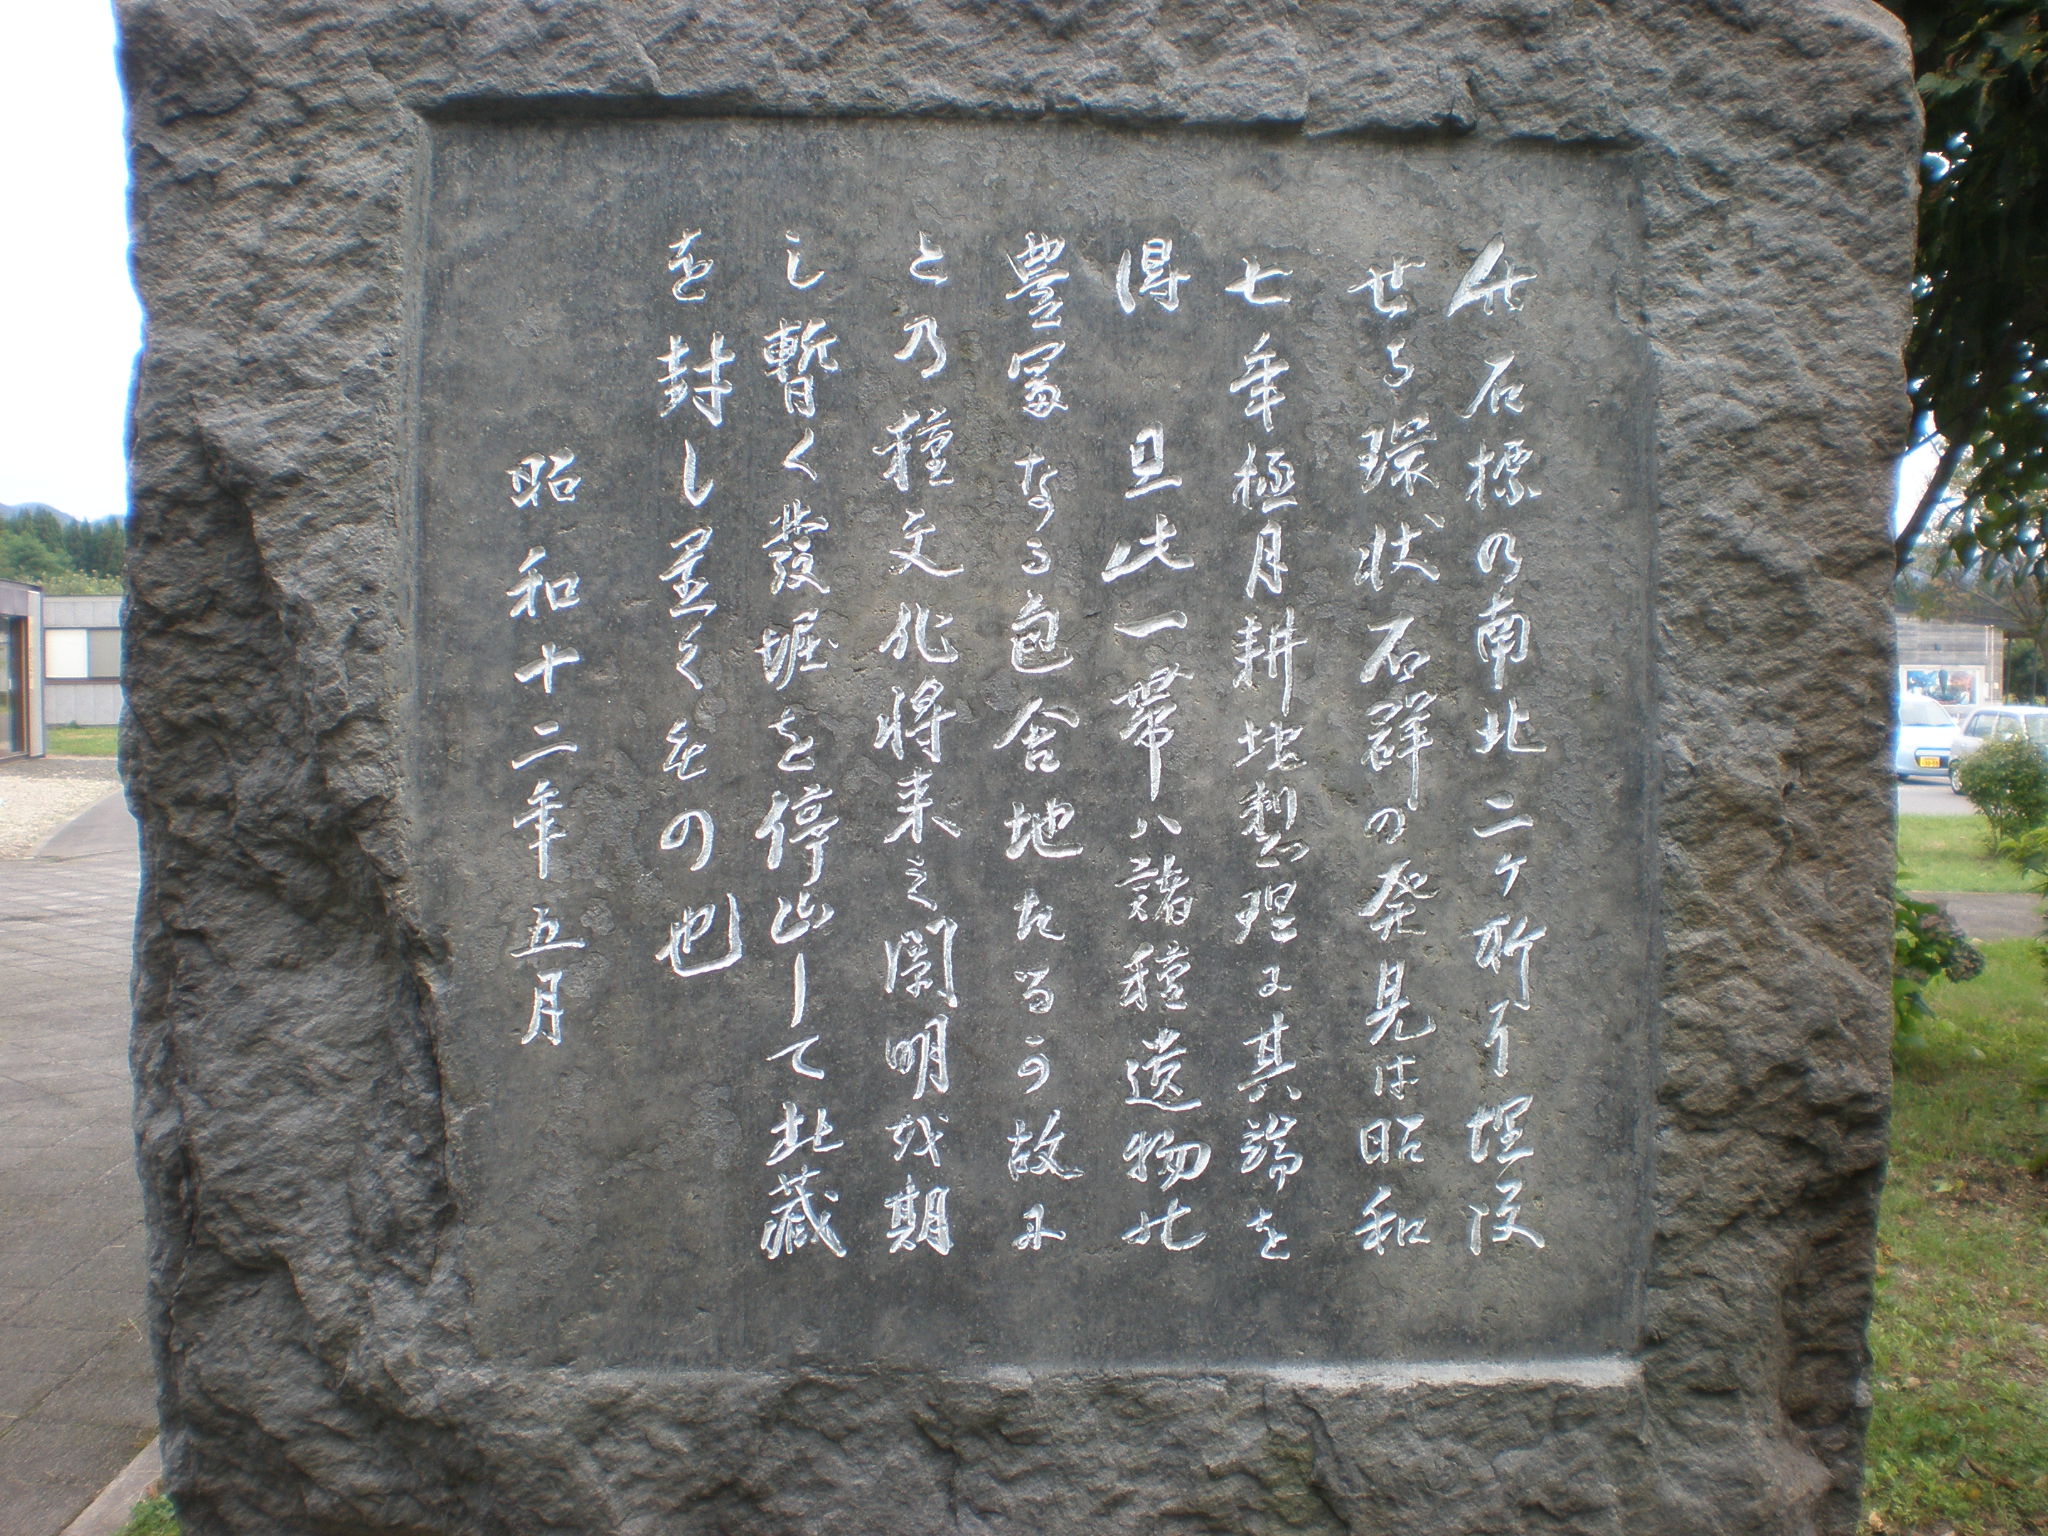 此石標の南北二ヶ所に埋没
せる環状石群の発見は昭和
七年極月耕地整理に其端を
得 且此一帯ハ諸種遺物の
豊富なる包含地たるが故に
この種文化将来之闡明を期
し暫く發堀を停止して此蔵
を封し置くもの也
昭和十二年五月